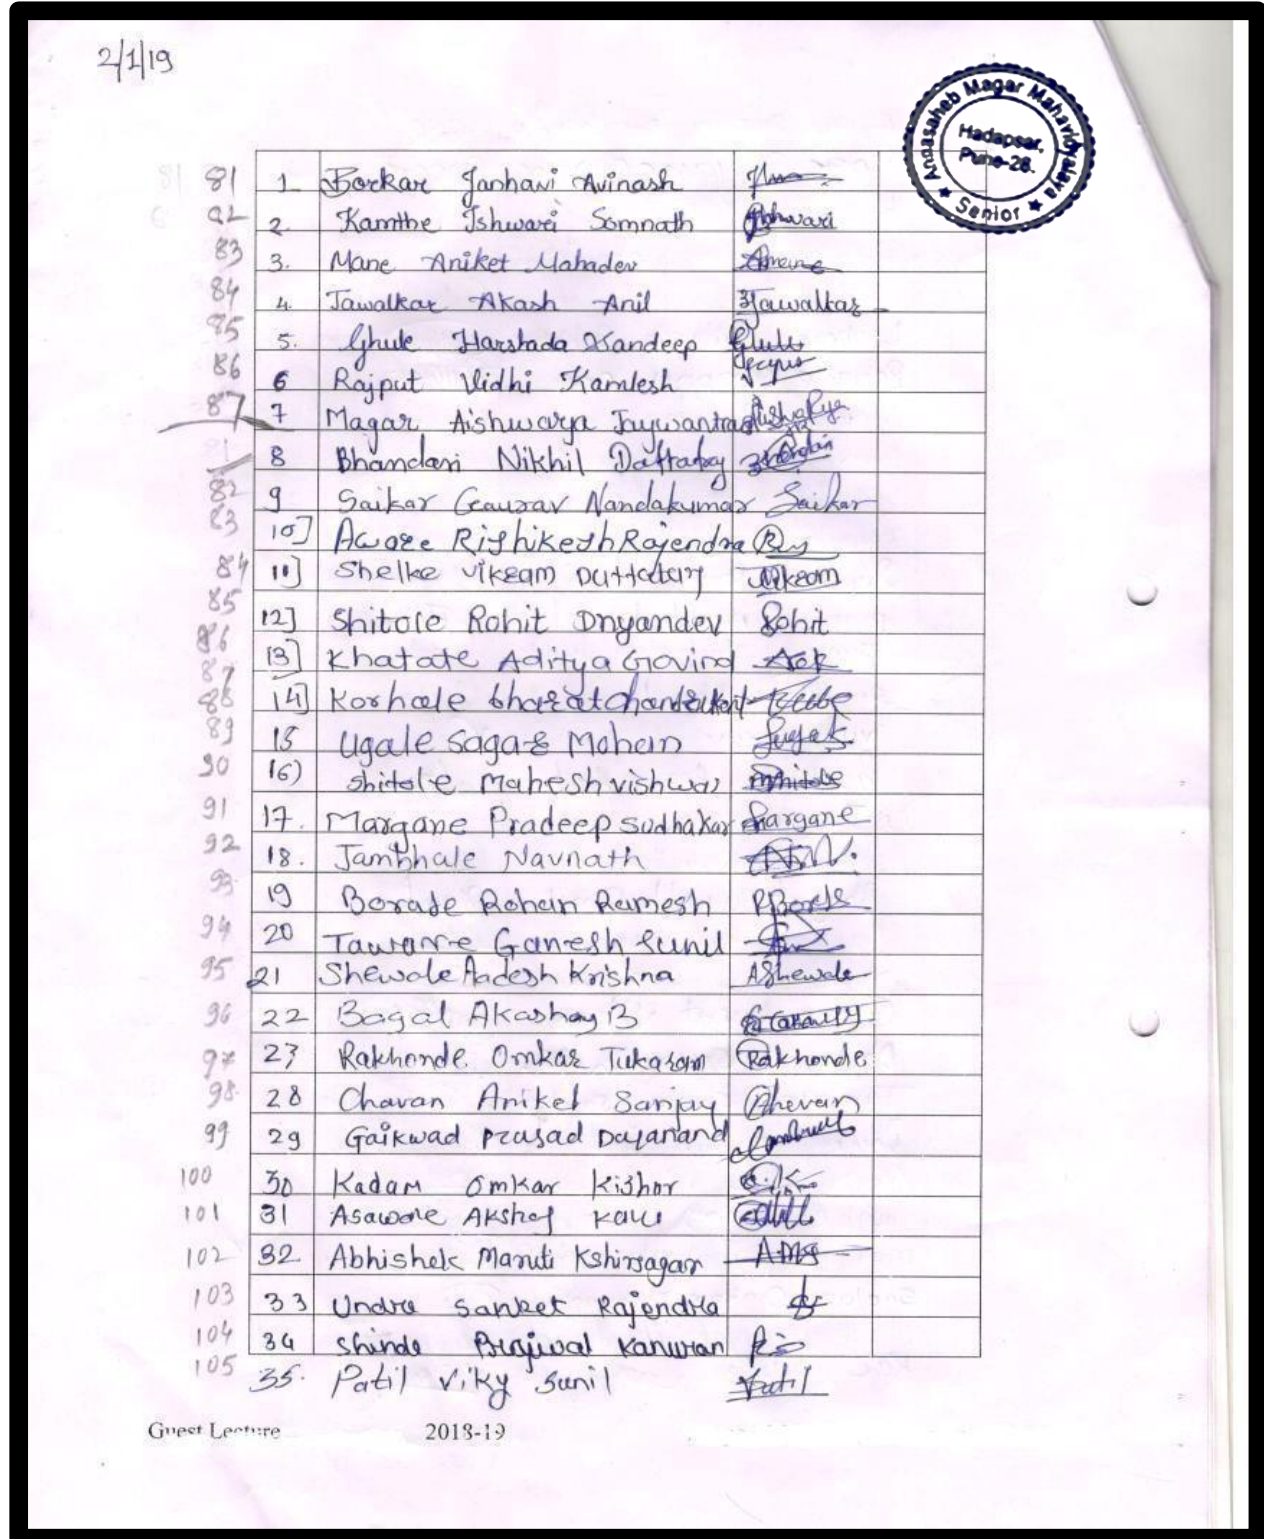 2/1/19
Annasaheb Magar Mahavidyalaya
Hadapsar,
Pune-28.
★ Senior ★
81 1 Borkar Janhavi Avinash
82 2 Kamthe Ishwari Somnath Ishwari
83 3. Mane Aniket Mahadev Amane
84 4. Jawalkar Akash Anil Jawalkar
85 5. Ghule Harshada Sandeep Ghule
86 6 Rajput Vidhi Kamlesh
87 7 Magar Aishwarya Jaywantrao Aishwarya
81 8 Bhandari Nikhil Dattatray
82 9 Saikar Gaurav Nandakumar Saikar
83 10] Aware Rishikesh Rajendra
84 11] Shelke Vikram Duttatray Vikram
85 12] Shitole Rohit Dnyandev Rohit
86 13] Khatate Aditya Govind
87 14] Korhale bharat chandrakant
88
89 15 Ugale Sagar Mohan
90 16) Shitole Mahesh vishwas
91 17. Margane Pradeep Sudhakar Margane
92 18. Jambhale Navnath
93 19 Borate Rohan Ramesh
94 20 Taware Ganesh Sunil
95 21 Shewale Aadesh Krishna AShewale
96 22 Bagal Akashay B
97 23 Rakhonde Omkar Tukaram Rakhonde
98 28 Chavan Aniket Sanjay Chavan
99 29 Gaikwad Prasad Dayanand
100 30 Kadam Omkar Kishor
101 31 Asawale Akshay
102 32 Abhishek Maruti Kshirsagar AMS
103 33 Undre Sanket Rajendra
104 34 Shinde Prajwal
105 35. Patil Viky Sunil Patil
Guest Lecture 2018-19